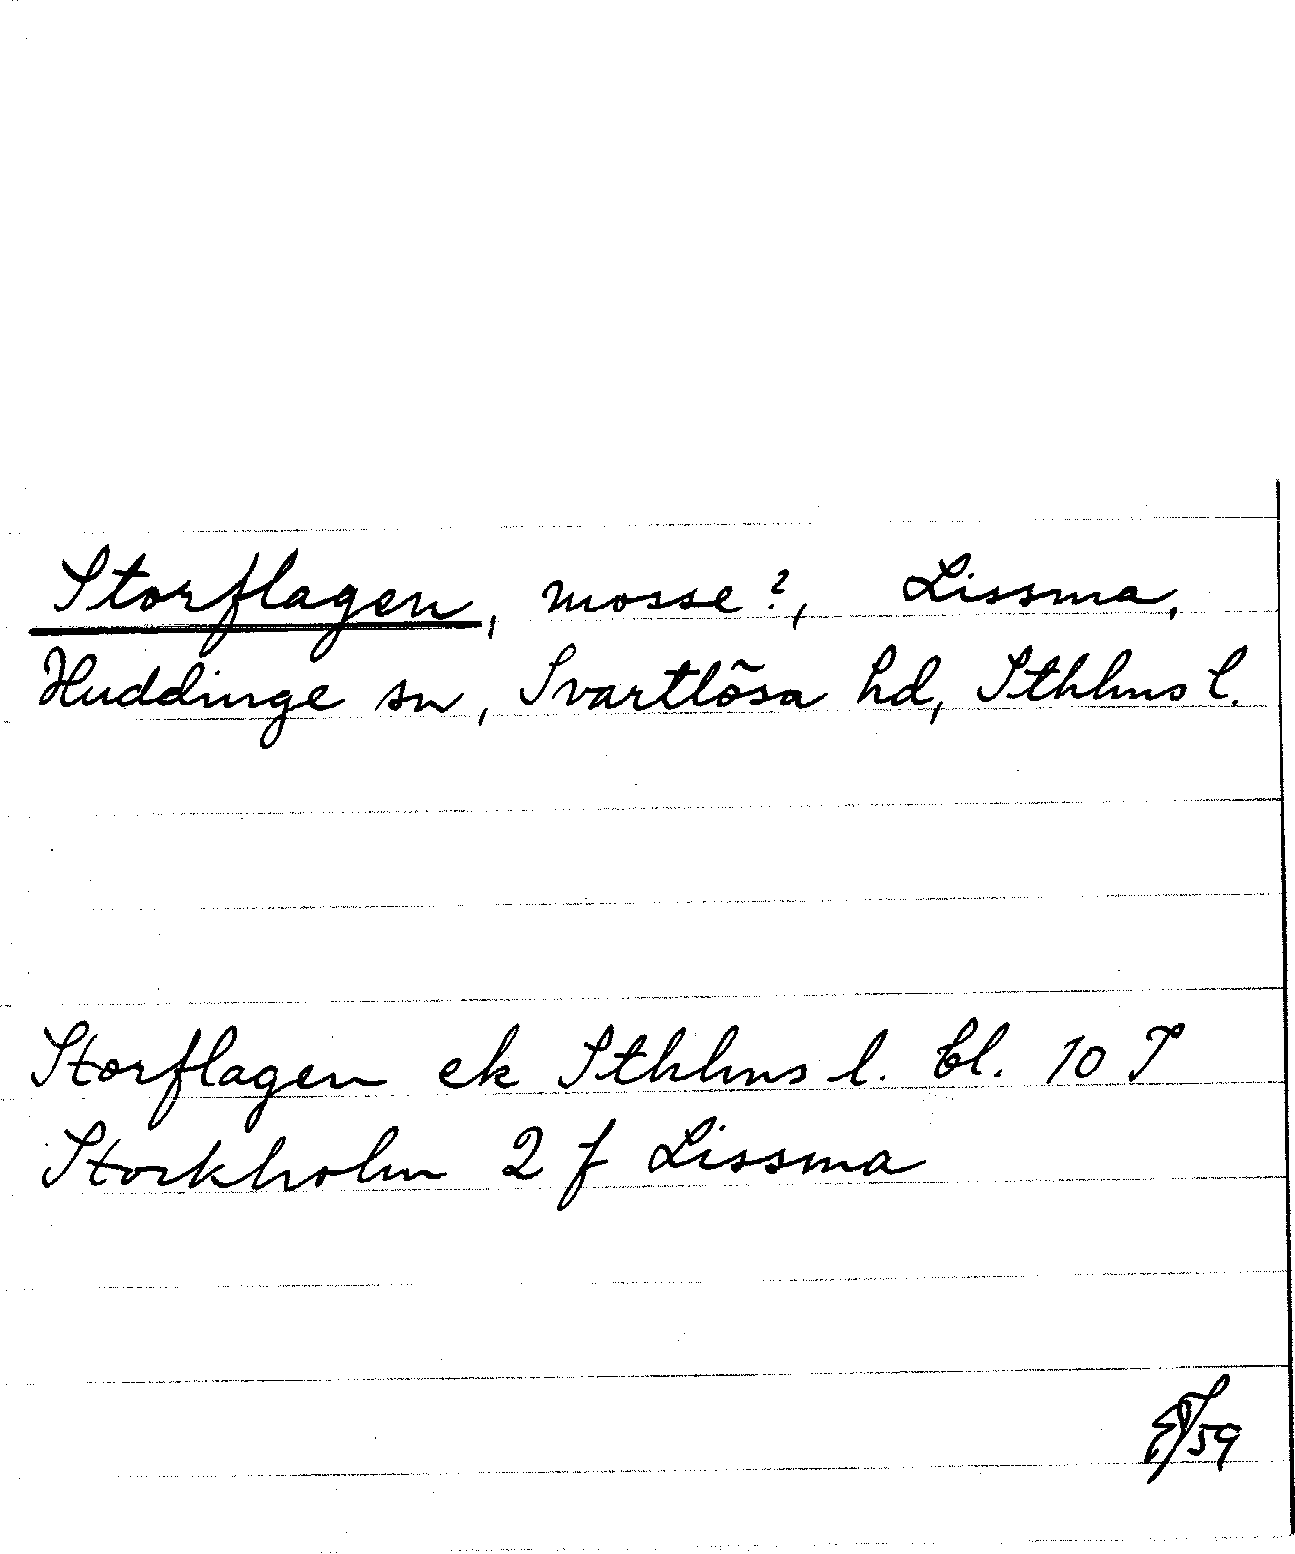 Storflagen, mosse?, Lissma,
Huddinge sn, Svartlösa hd, Sthlms l.
Storflagen ek Sthlms l. bl. 10 T
Stockholm 2 f Lissma
/59